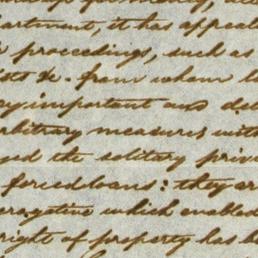 partment, it has appeal
proceedings, such as
&c. from whom
important and
arbitrary measures with
yed the solitary priv
forced loans: they ar
rogative which enabled
right of property has be